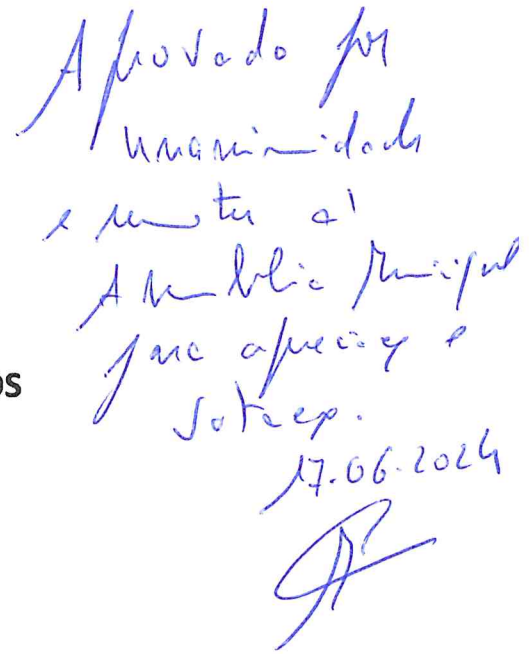 Aprovado por
unanimidade
e remeter à
Assembleia Municipal
para apreciação e
os
votação.
17.06.2024